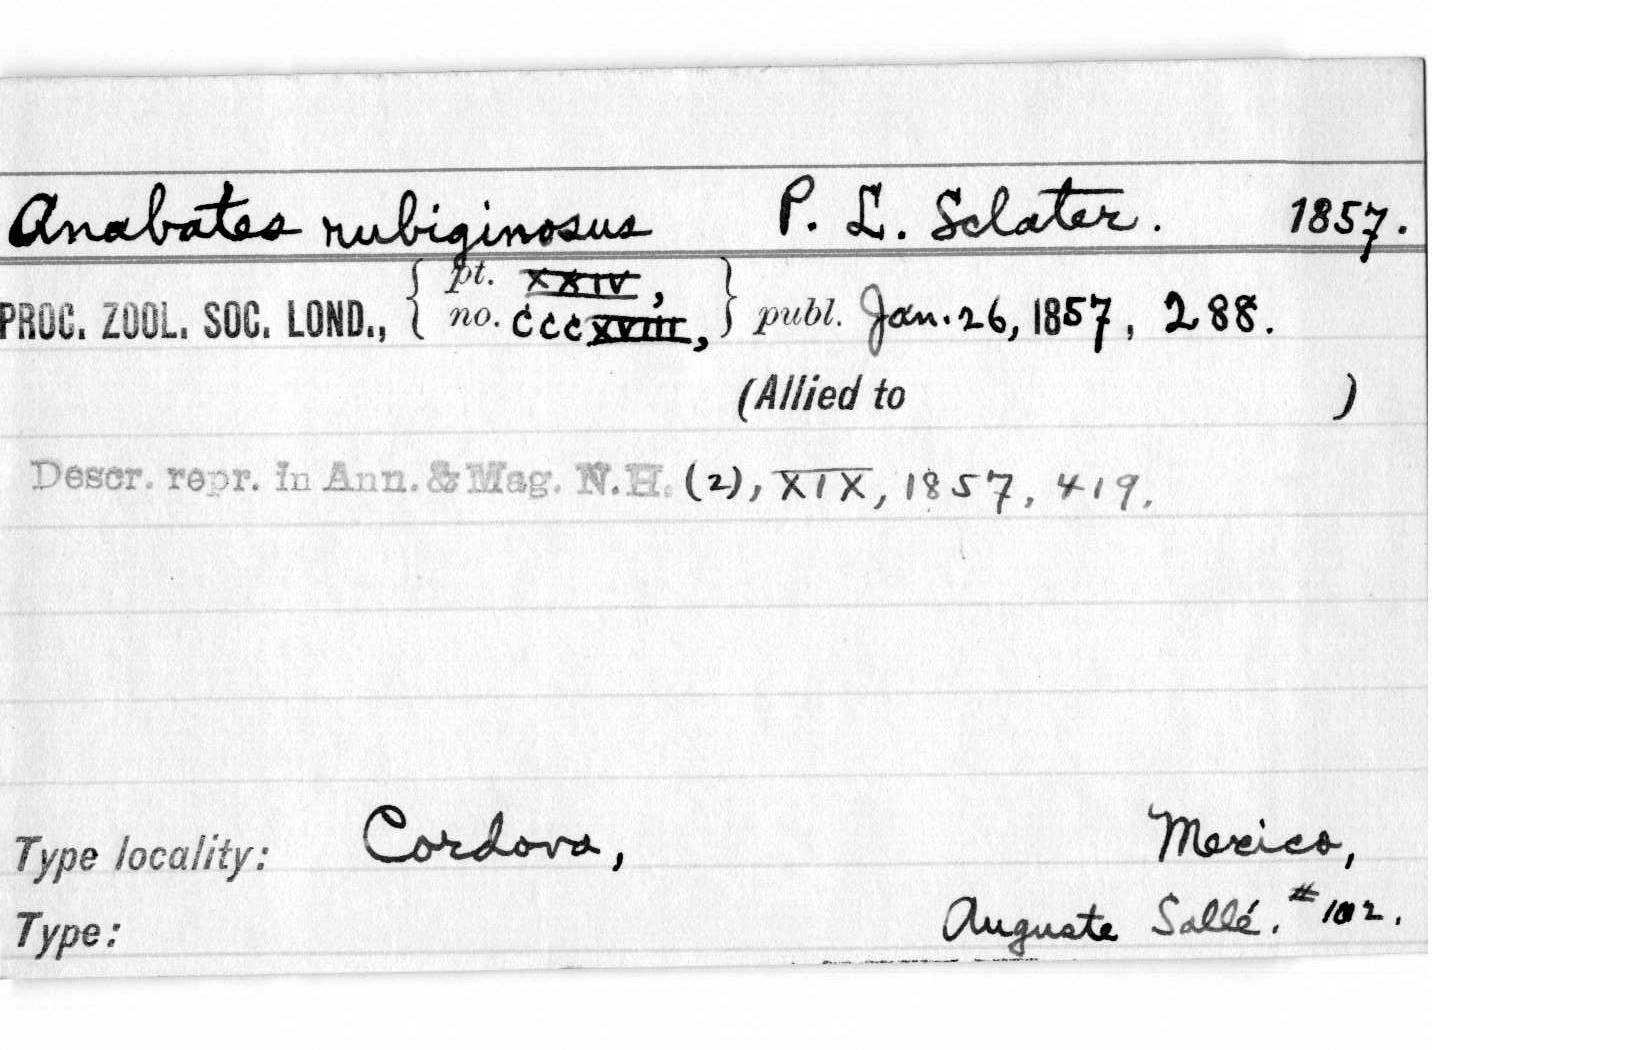 Anabates rubiginosus P. L. Sclater. 1857.
PROC. ZOOL. SOC. LOND., { pt. XXIV, no. CCCXVIII, } publ. Jan. 26, 1857, 288.
(Allied to )
Descr. repr. in Ann. & Mag. N.H. (2), XIX, 1857, 419.
Type locality: Cordova, Mexico,
Type: Auguste Sallé. #102.